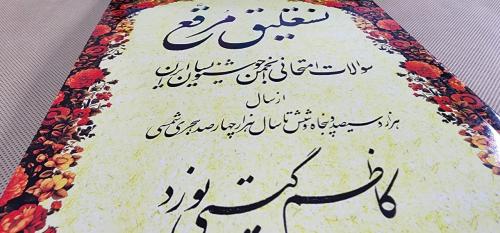 نستعلیق مرقع
سؤالات امتحانی انجمن خوشنویسان ایران
از سال
هزار و سیصد و پنجاه و شش تا سال هزار و چهارصد هجری شمسی
کاظم گیتی نورد